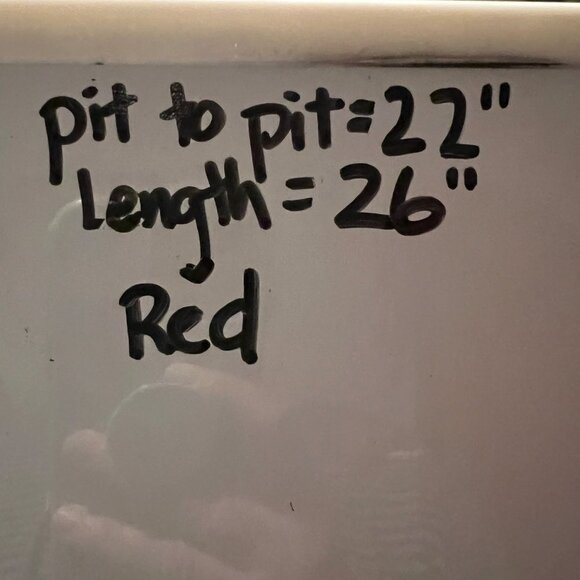 pit to pit=22"
Length=26"
Red